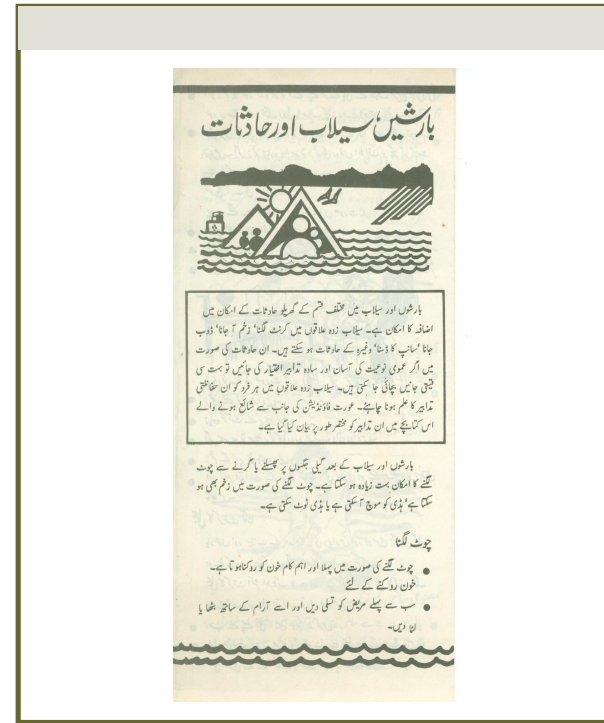 بارشیں، سیلاب اور حادثات
بارشوں اور سیلاب میں مختلف قسم کے گھریلو حادثات کے امکان میں
اضافہ کا امکان ہے۔ سیلاب زدہ علاقوں میں کرنٹ لگنا' زخم آ جانا' ڈوب
جانا 'سانپ کا ڈسنا' وغیرہ کے حادثات ہو سکتے ہیں۔ ان حادثات کی صورت
میں اگر عمومی نوعیت کی آسان اور سادہ تدابیر اختیار کی جائیں تو بہت سی
قیمتی جانیں بچائی جا سکتی ہیں۔ سیلاب زدہ علاقوں میں ہر فرد کو ان حفاظتی
تدابیر کا علم ہونا چاہئے۔ عورت فاؤنڈیشن کی جانب سے شائع ہونے والے
اس کتابچے میں ان تدابیر کو مختصر طور پر بیان کیا گیا ہے۔
بارشوں اور سیلاب کے بعد گیلی جگہوں پر پھسلنے یا گرنے سے چوٹ
لگنے کا امکان بہت زیادہ ہو سکتا ہے۔ چوٹ لگنے کی صورت میں زخم بھی ہو
سکتا ہے' ہڈی کو موچ آ سکتی ہے یا ہڈی ٹوٹ سکتی ہے۔
چوٹ لگنا
● چوٹ لگنے کی صورت میں پہلا اور اہم کام خون کو روکنا ہوتا ہے۔
خون روکنے کے لئے
● سب سے پہلے مریض کو تسلی دیں اور اسے آرام کے ساتھ بٹھا یا
دیں۔